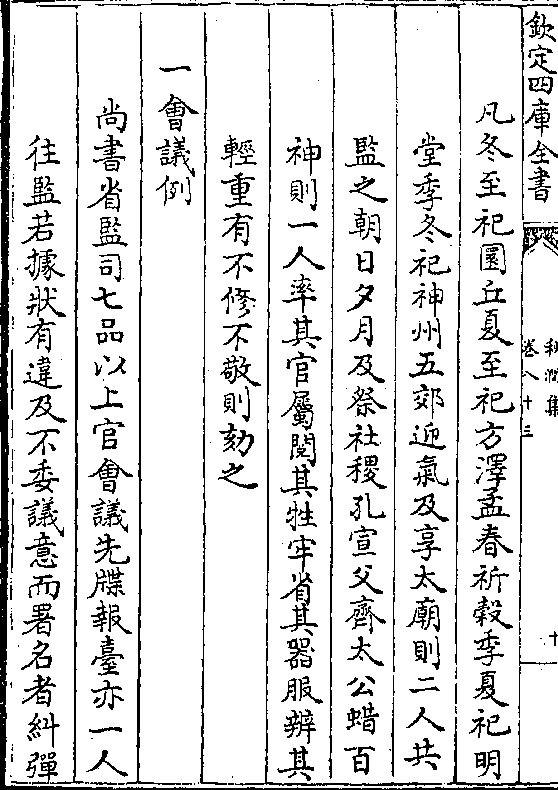 欽定四庫全書
卷八十三
凡冬至祀圜丘夏至祀方澤孟春祈穀季夏祀明
堂季冬祀神州五郊迎氣及享太廟則二人共
監之朝日夕月及祭社稷孔宣父齊太公蜡百
神則一人率其官屬閱其牲牢省其器服辨其
輕重有不修不敬則劾之
一會議例
尚書省監司七品以上官會議先牒報臺亦一人
往監若據狀有違及不委議意而署名者糾彈